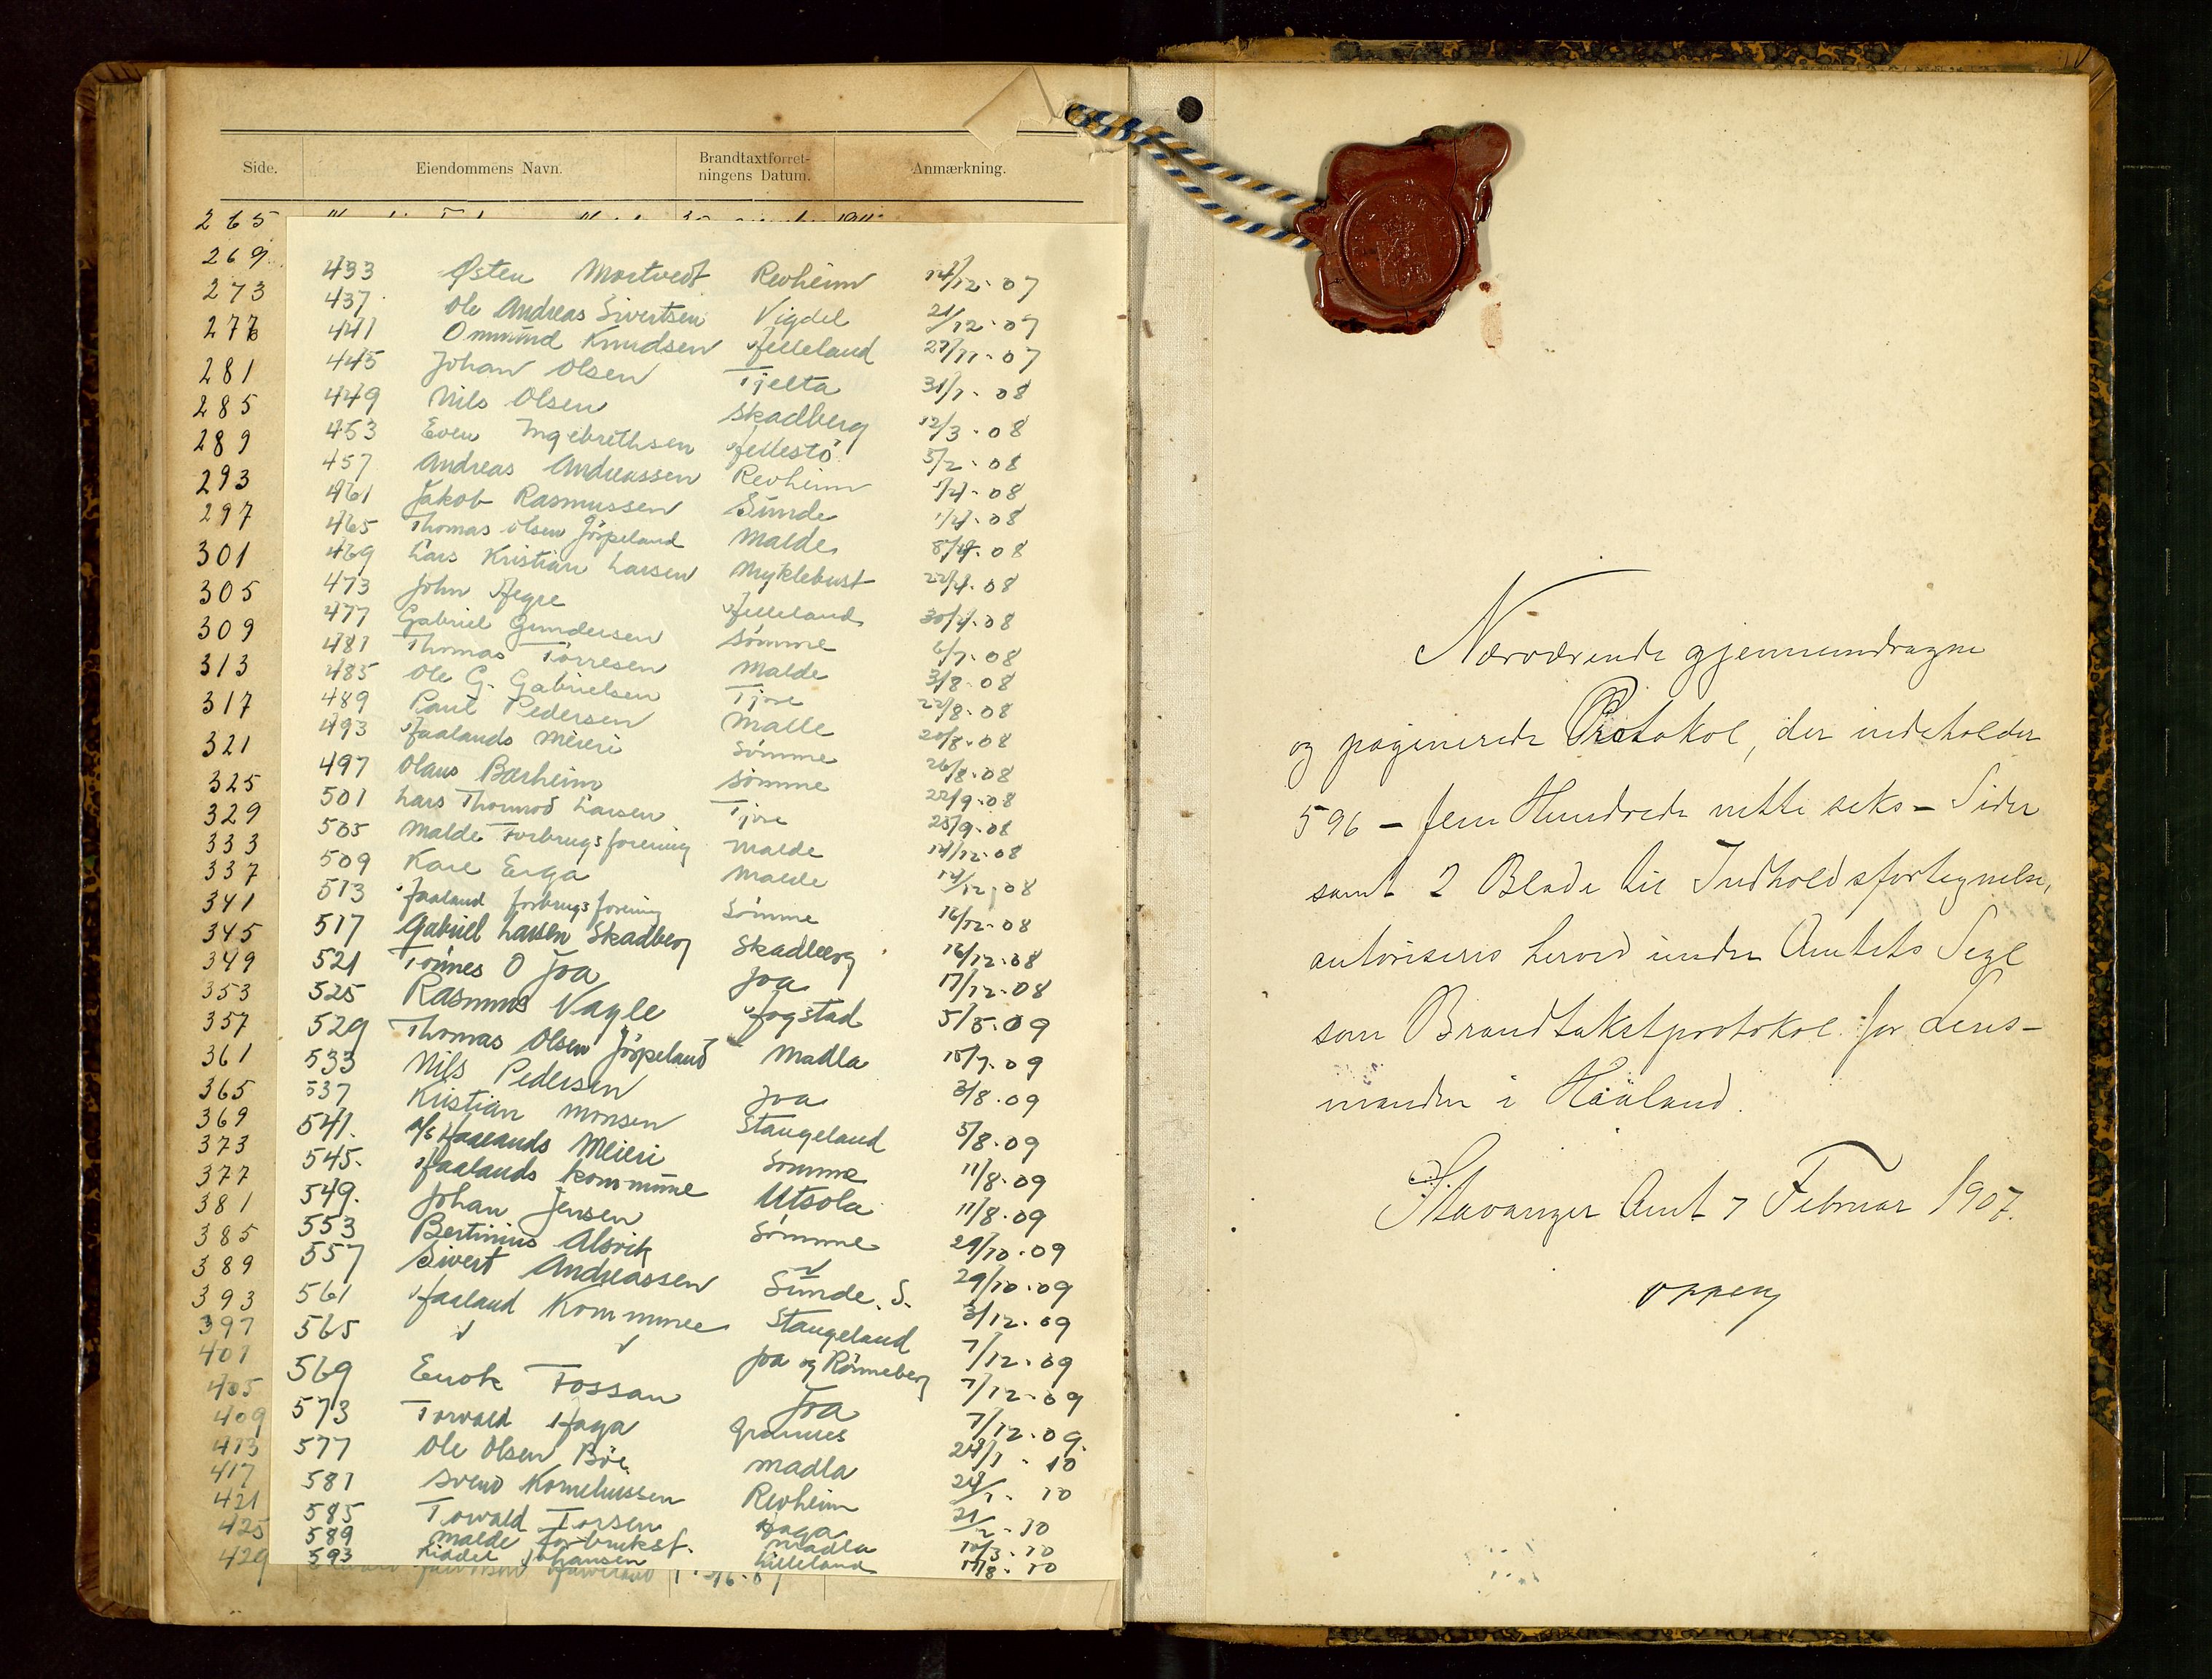 Side. Eiendommens Navn. Brandtaxtforret-
ningens Datum. Anmærkning.
265
269
273
277
281
285
289
293
297
301
305
309
313
317
321
325
329
333
337
341
345
349
353
357
361
365
369
373
377
381
385
389
393
397
401
405
409
413
417
421
425
429
433 Østen Mortvedt Revheim 14/12-07
437 Ole Andreas Sivertsen Vigdel 21/12-07
441 Ommund Knudsen Helleland 27/11-07
445 Johan Olsen Tjelta 31/1-08
449 Nils Olsen Skadberg 12/3-08
453 Even Ingebrethsen Hellestö 5/2-08
457 Andreas Andreassen Revheim 1/4-08
461 Jakob Rasmussen Sunde 1/4-08
465 Thomas Olsen Jörpeland Malde 8/4-08
469 Lars Kristian Larsen Myklebust 22/4-08
473 John Hegre Helleland 30/4-08
477 Gabriel Gundersen Sömme 6/7-08
481 Thomas Törresen Malde 3/8-08
485 Ole G. Gabrielsen Tjore 22/8-08
489 Paul Pedersen Malle 20/8-08
493 Haalands Meieri Sömme 26/8-08
497 Olaus Barheim Sömme 22/9-08
501 Lars Thormod Larsen Tjore 25/9-08
505 Malde Forbrugsforening Malde 14/12-08
509 Kare Erga Malde 14/12-08
513 Haaland forbrugsforening Sömme 16/12-08
517 Gabriel Larsen Skadberg Skadberg 16/12-08
521 Tönnes O Joa Joa 17/12-08
525 Rasmus Vagle Hogstad 5/5-09
529 Thomas Olsen Jörpeland Madla 15/7-09
533 Nils Pedersen Joa 3/8-09
537 Kristian Monsen Stangeland 5/8-09
541. A/S Haalands Meieri Sömme 11/8-09
545. Haalands kommune Utsola 11/8-09
549. Johan Jensen Sömme 29/10-09
553 Bertinius Alsvik 29/10-09
557 Sivert Andreassen Sunde. S. 3/12-09
561 Haaland Kommune Stangeland 7/12-09
565 Joa og Rönneberg 7/12-09
569 Enok Fossan Joa 7/12-09.
573 Torvald Haga Grannes 28/1-10
577 Ole Olsen Böe Madla 28/1-10
581 Svend Korneliussen Revheim 21/2-10
585 Torvald Torsen Haga
589 Malde forbruksf. Madla 10/3-10
593 Johansen Lilleland 17/8-10
Nærværende gjennemdragne
og paginerede Protokol, der indeholder
596 - fem Hundrede nitti seks - Sider
samt 2 Blade til Indholdsfortegnelse,
autoriseres herved under Amtets Segl
som Brandtakstprotokol for Lens-
manden i Håaland.
Stavanger Amt 7 Februar 1907.